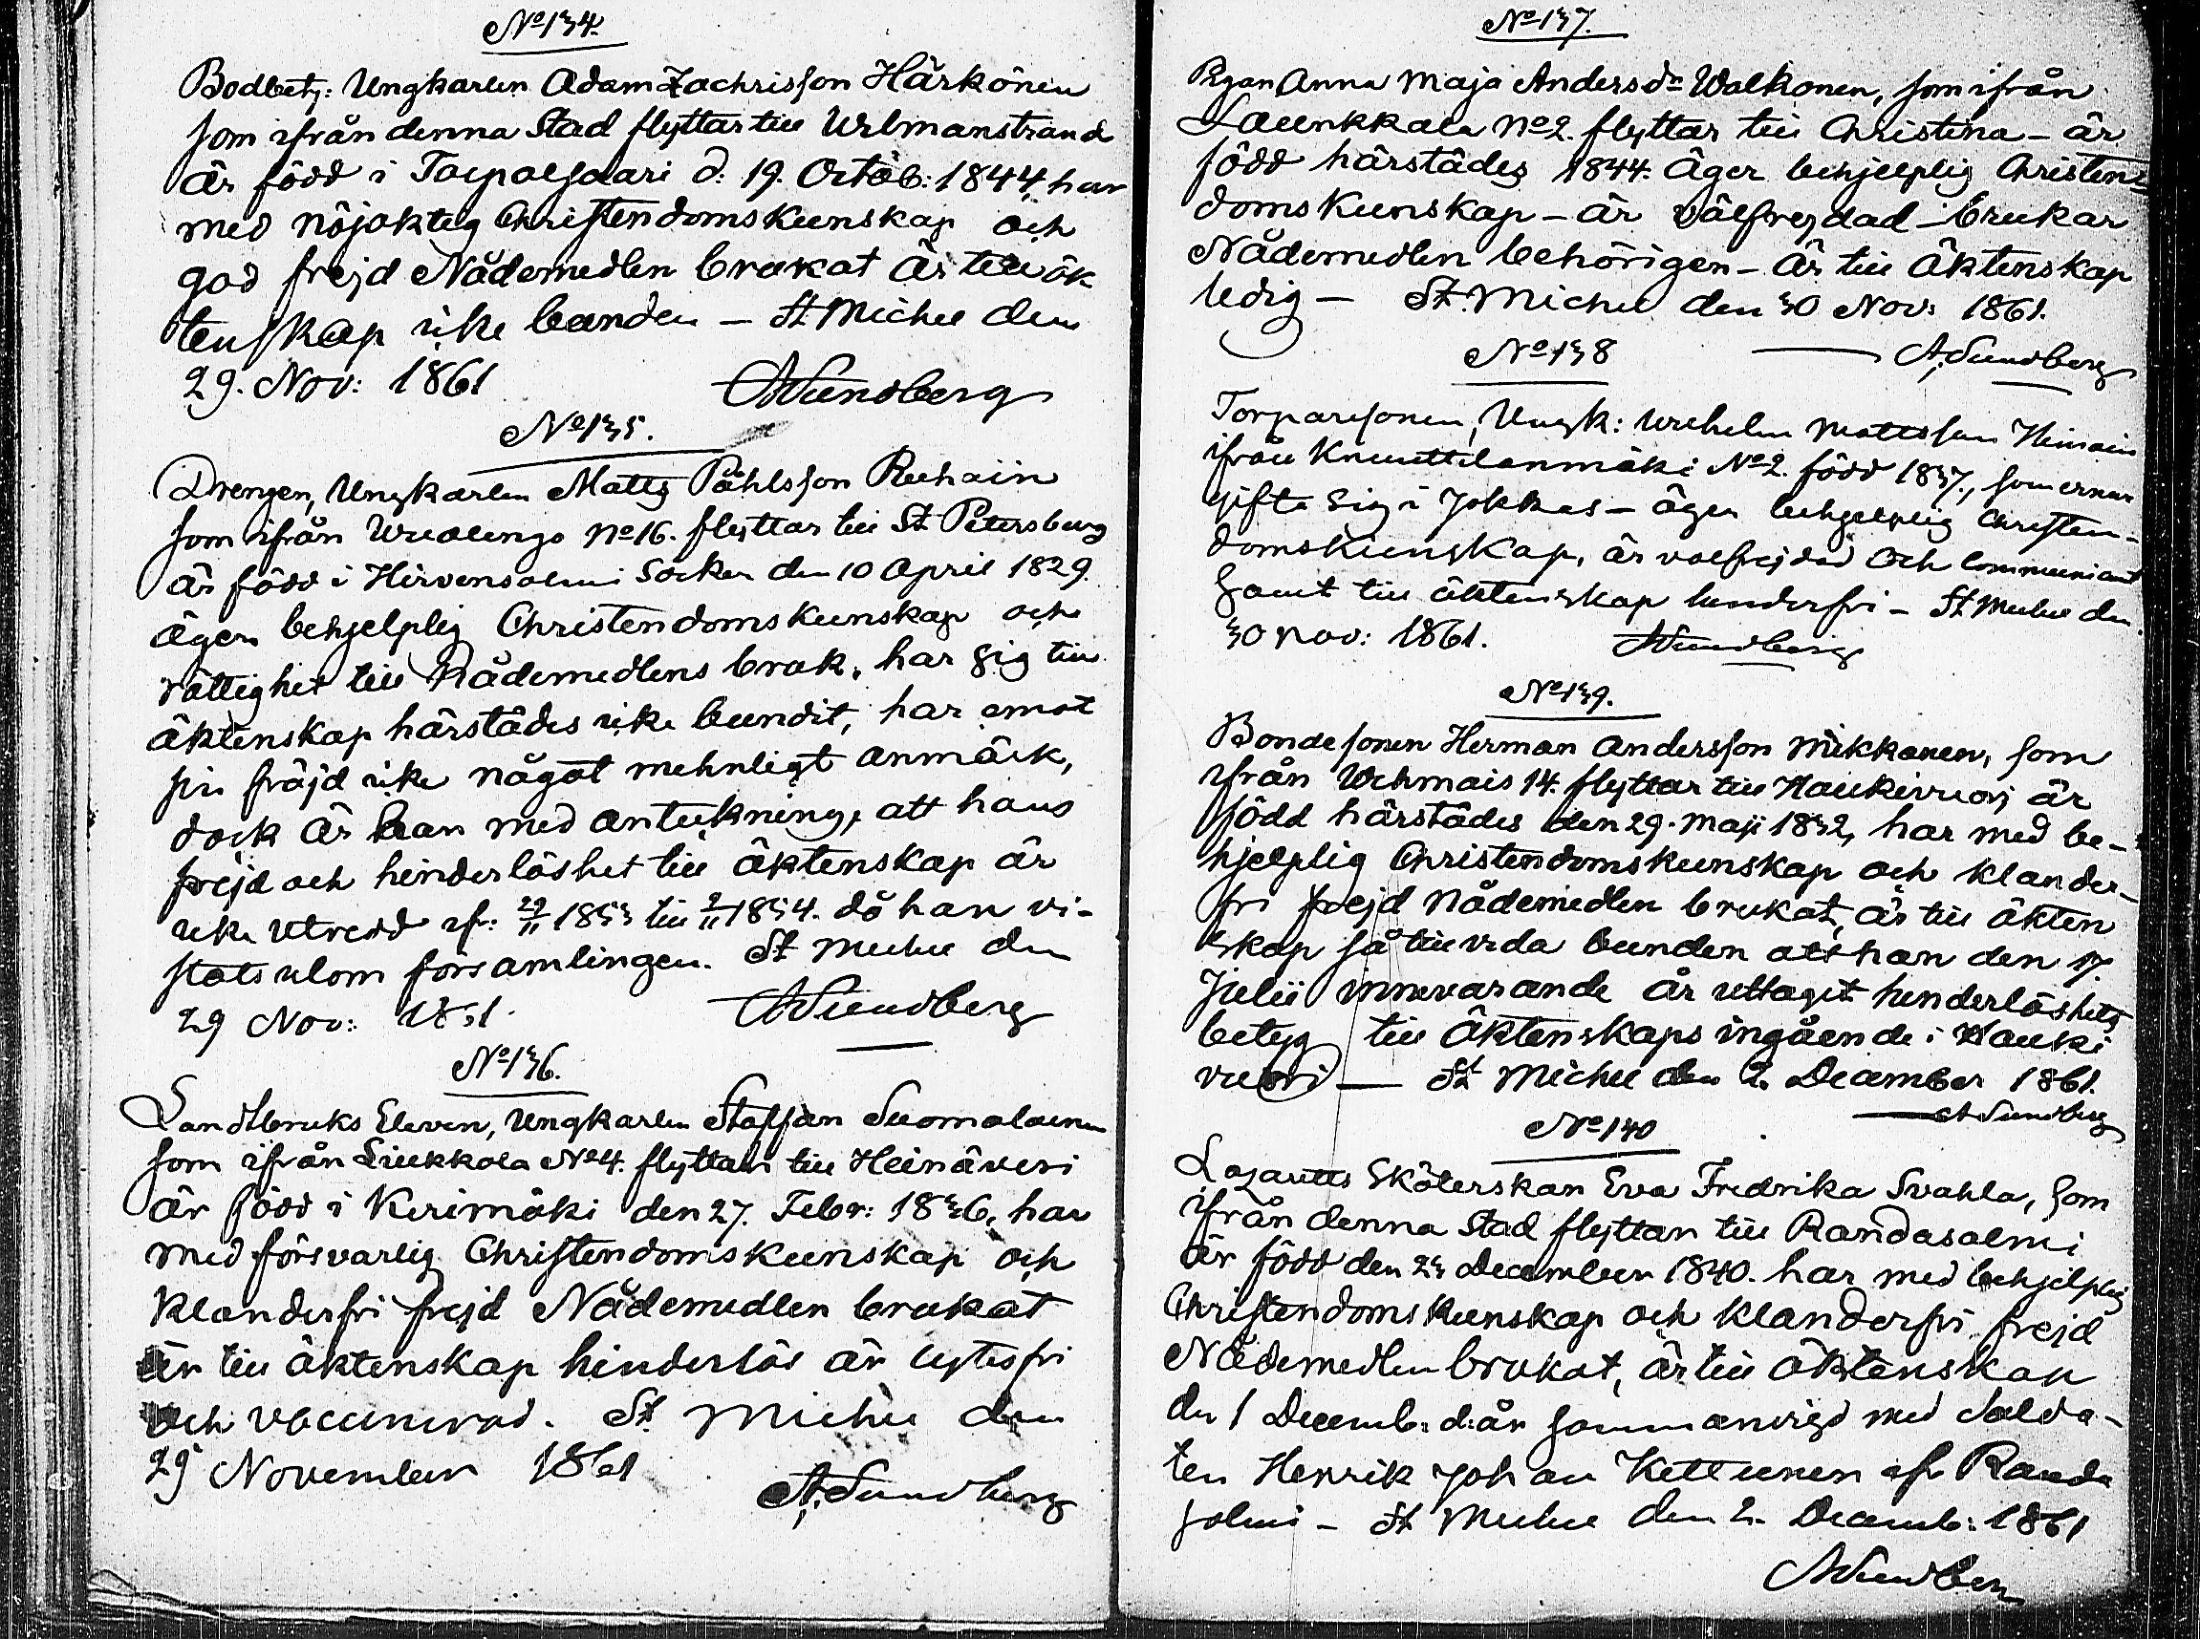 No 134.
Bodbetj: Ungkarlen Adam Zachrisson Härkönen
som ifrån denna Stad flyttar till Wilmanstrand
är född i Taipalsaari d: 19. Octob: 1844, har
med nöjaktig Christendomskunskap och
god frejd Nådemedlen brukat är till äk
tenskap icke bunden – St Michel den
29. Nov: 1861
A Sundberg
No 135.
Drengen, Ungkarlen Matts Påhlsson
som ifrån No 16. flyttar till St Petersburg
är född i Hirvensalmi Socken den 10 April 1829.
äger behjelplig Christendomskunskap och
rättighet till Nådemedlens bruk, har sig till
äktenskap härstädes icke bundit, har emot
sin fräjd icke något mehnligt anmärk,
dock är han med anteckning, att hans
frejd och hinderlöshet till äktenskap är
icke utredd ifr: 29/11 1853 till 2/11 1854. då han vi-
stats utom församlingen. St Michel den
29 Nov: 1861.
A Sundberg
No 136.
Landtbruks Eleven, Ungkarlen Staffan Suomalainen
som ifrån Liukkola No 4. flyttar till Heinävesi
är född i Kerimäki den 27. Febr: 1836, har
med försvarlig Christendomskunskap och
klanderfri frejd Nådemedlen brukat
är till äktenskap hinderlös är lytesfri
och vaccinerad. St Michel den
29 November 1861
A. Sundberg
No 137.
Pigan Anna Maja Andersdr Walkonen, som ifrån
Launkkala No 2. flyttar till Christina – är
född härstädes 1844. Äger behjelplig Christen-
domskunskap – är välfrejdad – brukar
Nådemedlen behörigen – är till äktenskap
ledig – St. Michel den 30 Nov: 1861.
A. Sundberg
No 138
Torparesonen, Ungk: Wilhelm Mattsson
ifrån Knuuttilanmäki No 2. född 1837., som ernar
gifta sig i Jokkas – äger behjelplig Christen-
domskunskap, är välfrejdad och Communicant
samt till äktenskap hinderfri – St Michel den
30 Nov: 1861.
A Sundberg
No 139.
Bondesonen Herman Andersson Mikkonen, som
ifrån Wehmais 14. flyttar till Haukivuorj är
född härstädes den 29. Maji 1832, har med be-
hjelplig Christendomskunskap och klander-
fri frejd Nådemedlen brukat, är till äkten
skap så till vida bunden att han den 17.
Julii innevarande år uttagit hinderlöshets
betyg till äktenskaps ingående i Hauki
vuori – St Michel den 2. December 1861.
A Sundberg
No 140
Lazaretts Sköterskan Eva Fredrika Svahla, som
ifrån denna Stad flyttar till Randasalmi
är född den 23 December 1840. har med behjelplig
Christendomskunskap och klanderfri frejd
Nådemedlen brukat, är till äktenskap
den 1 Decemb: d: år sammanvigd med Solda-
ten Henrik Johan Kettunen ifr Randa
salmi – St Michel den 2. Decemb: 1861
A Sundberg